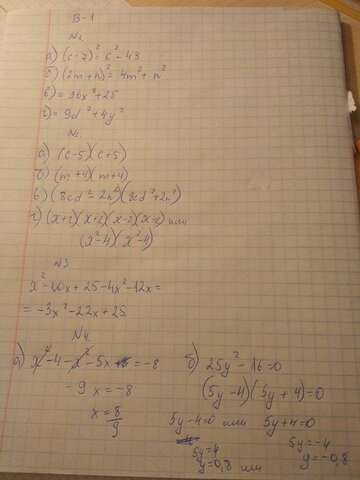 В-1
№1
а) (c-7)² = c² - 49
б) (2m+n)² = 4m² + n²
в) = 36x² + 25
г) = 9d² + 4y²
№2
а) (c-5)(c+5)
б) (m+4)(m+4)
в)
г) (x+2)(x+2)(x-2)(x-2) или
(x²-4)(x²-4)
№3
x² - 10x + 25 - 4x² - 12x =
= -3x² - 22x + 25
№4
а) x² - 4 - x² - 5x = -8
-9x = -8
x = 8/9
б) 25y² - 16 = 0
(5y-4)(5y+4) = 0
5y-4=0 или 5y+4=0
5y=4
y=0,8 или
5y=-4
y=-0,8